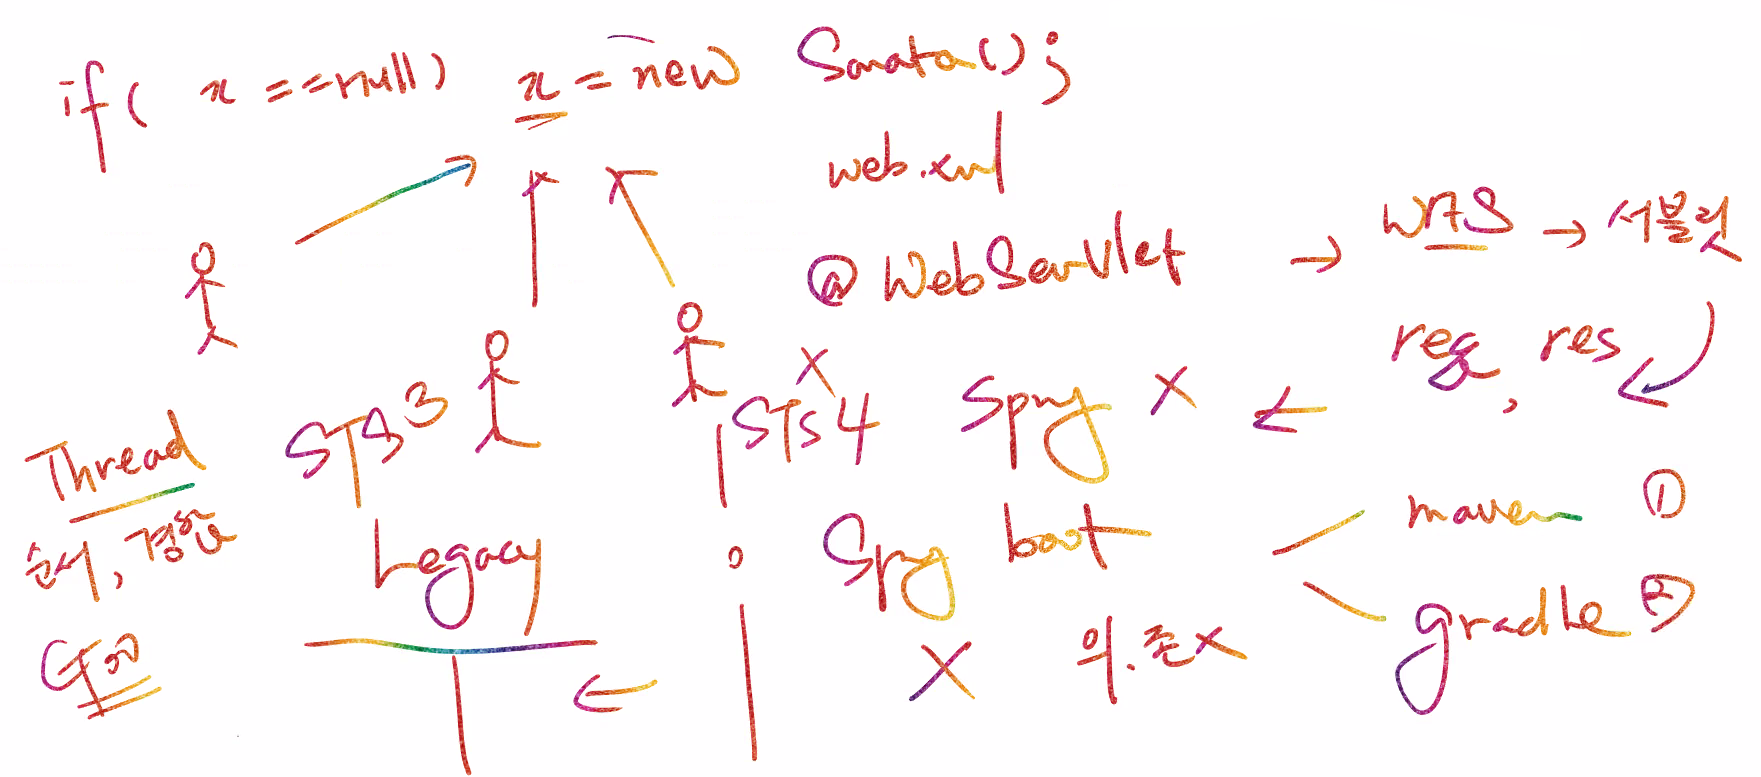 if( x ==null) x = new Sonata();
web.xml
@WebServlet → WAS → 서블릿
req, res
STS3 STS4 Spring X ←
Thread
순서,
Legacy Spring boot
maven ①
gradle ②
X 의.존X